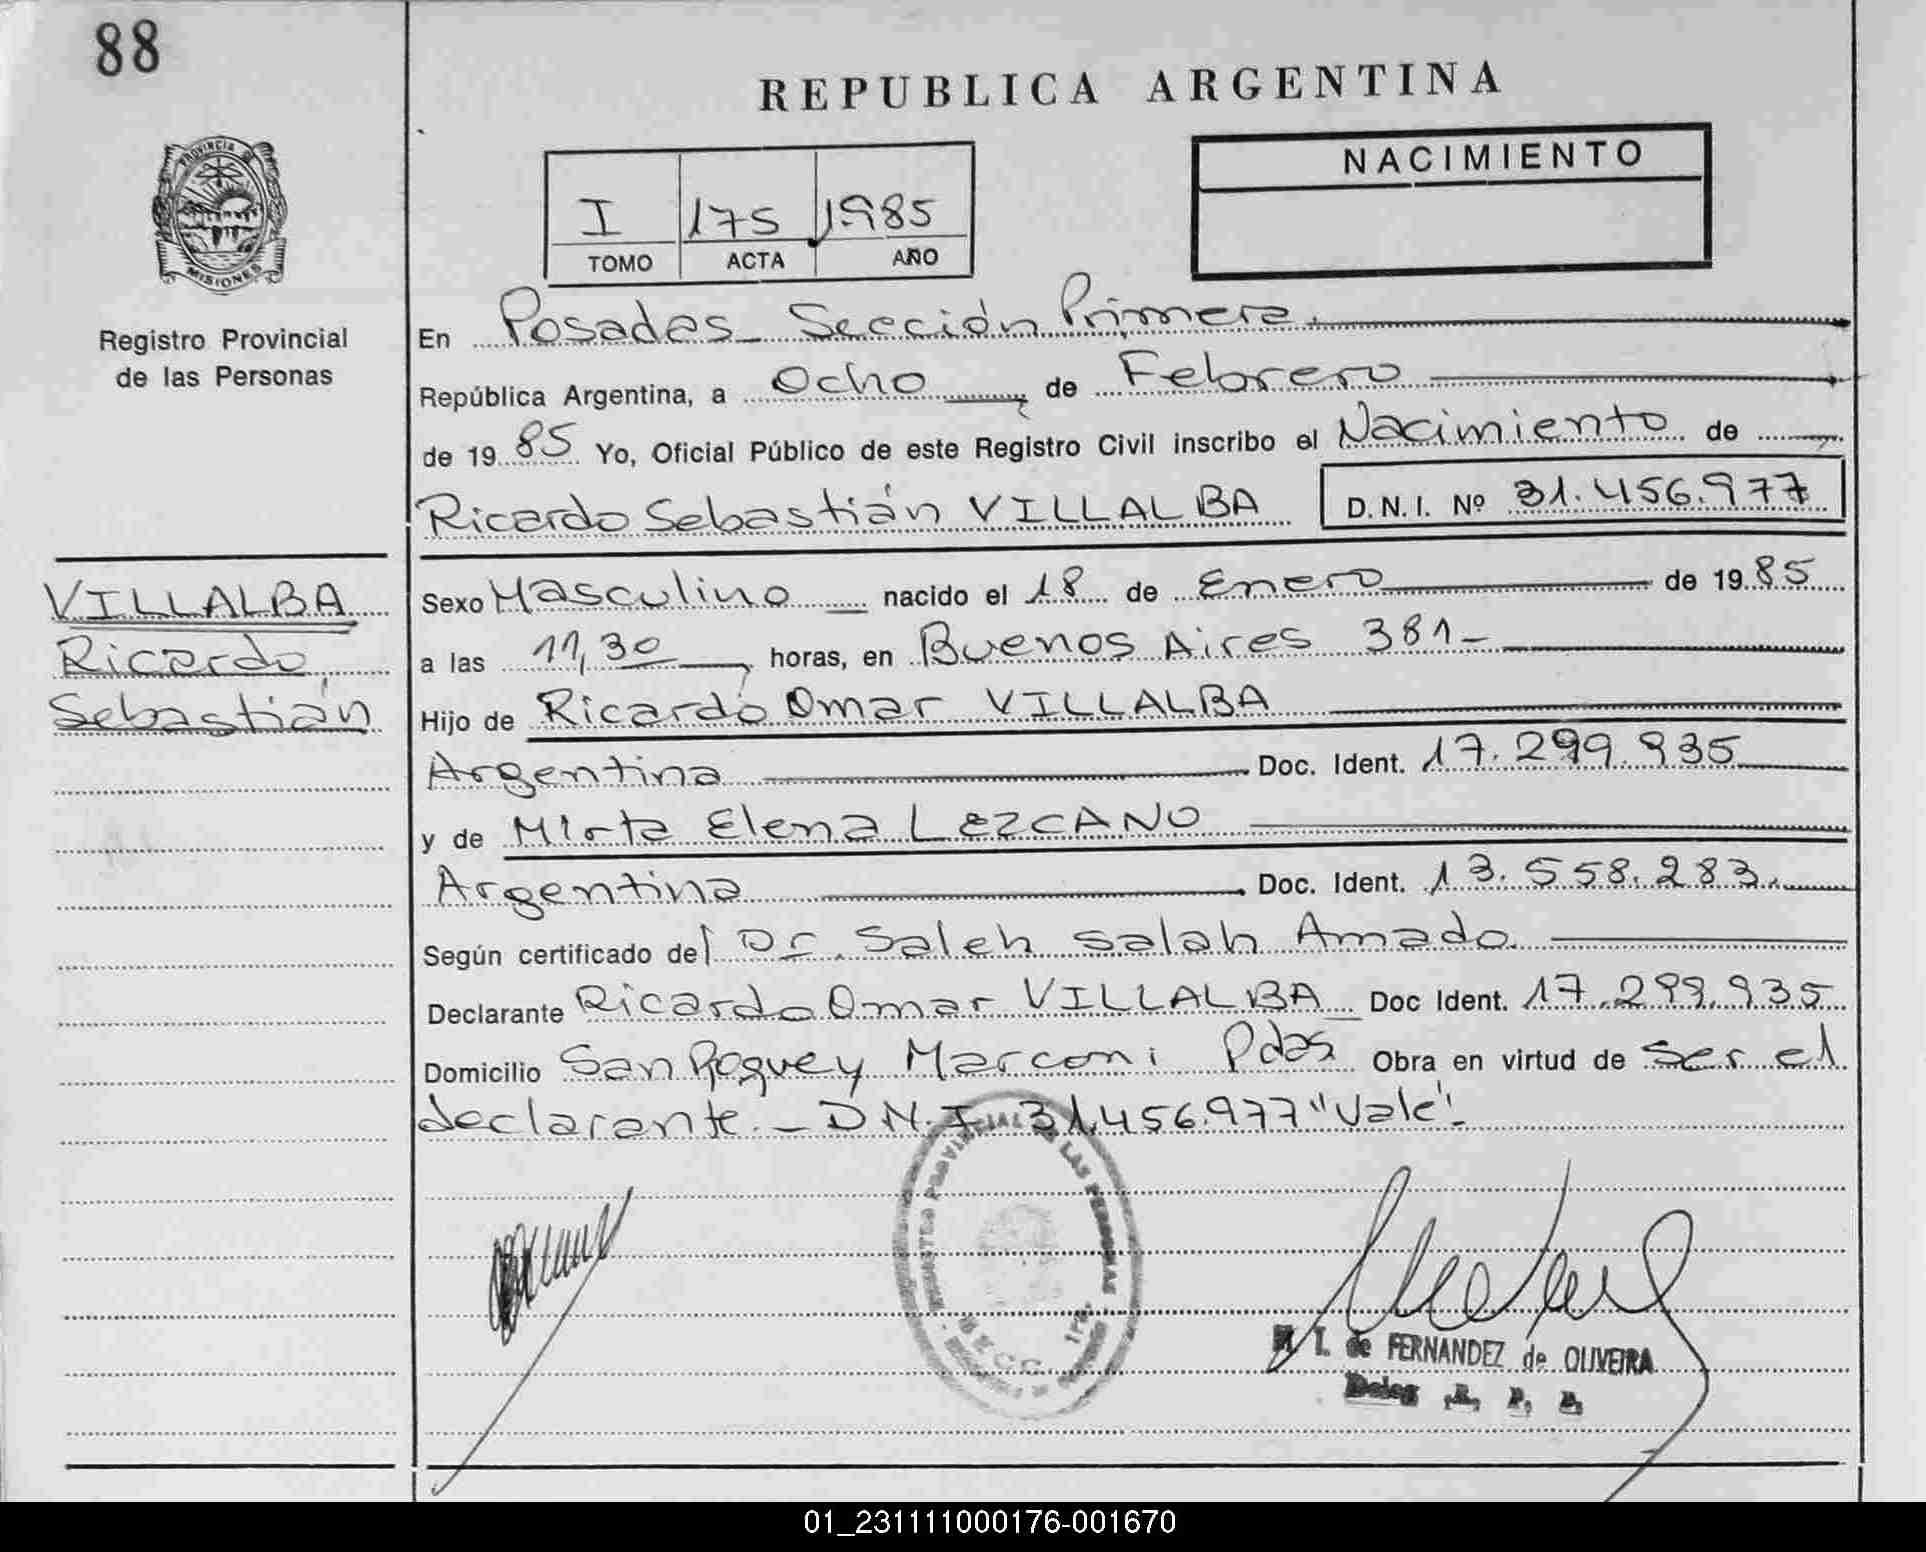 88
REPUBLICA ARGENTINA
PROVINCIA DE
MISIONES
I 175 1985
TOMO ACTA AÑO
NACIMIENTO
Registro Provincial
de las Personas
En Posadas - Sección Primera.
República Argentina, a Ocho de Febrero
de 1985 Yo, Oficial Público de este Registro Civil inscribo el Nacimiento de
Ricardo Sebastián VILLALBA D.N.I. Nº 31.456.977
VILLALBA
Ricardo
Sebastián
Sexo Masculino nacido el 18 de Enero de 1985
a las 11,30 horas, en Buenos Aires 381-
Hijo de Ricardo Omar VILLALBA
Argentina Doc. Ident. 17.299.935
y de Mirta Elena LEZCANO
Argentina Doc. Ident. 13.558.283.
Según certificado del Dr. Saleh Salah Amado
Declarante Ricardo Omar VILLALBA Doc Ident. 17.299.935
Domicilio San Roque y Marconi Pdas Obra en virtud de ser el
declarante. - D.N.I. 31.456.977 "Vale".-
REGISTRO PROVINCIAL DE LAS PERSONAS
SECC. 1ra.
M I. de FERNANDEZ de OLIVEIRA
Deleg. R. P. P.
01_231111000176-001670